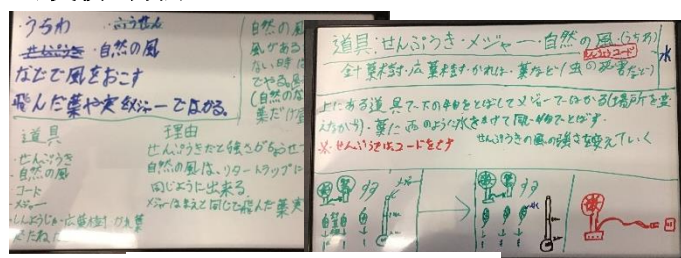 ・うちわ ふうせん
せんぷうき ・自然の風
などで風をおこす
飛んだ葉や実をメジャーではかる。
自然の風
風がある
ない時は
でやる。風
(自然のな
葉だけ
道具
・せんぷうき
・自然の風
コード
・メジャー
・しんようじゅ・広葉樹 かれ葉
理由
せんぷうきだと強さがちょうせつ
自然の風は、リタートラップに
同じように出来る。
メジャーはまえと同じで飛んだ葉実
道具:せんぷうき・メジャー・自然の風・(うちわ)
えんちょうコード
水
針葉樹・広葉樹・かれは・葉など(虫の死害など)
上にある道具で下の物をとばしてメジャーではかる(場所を変
えながら)・葉に雨のように水をまぜて風の力でとばす。
※せんぷうきはコードをさす
せんぷうきの風の強さを変えていく